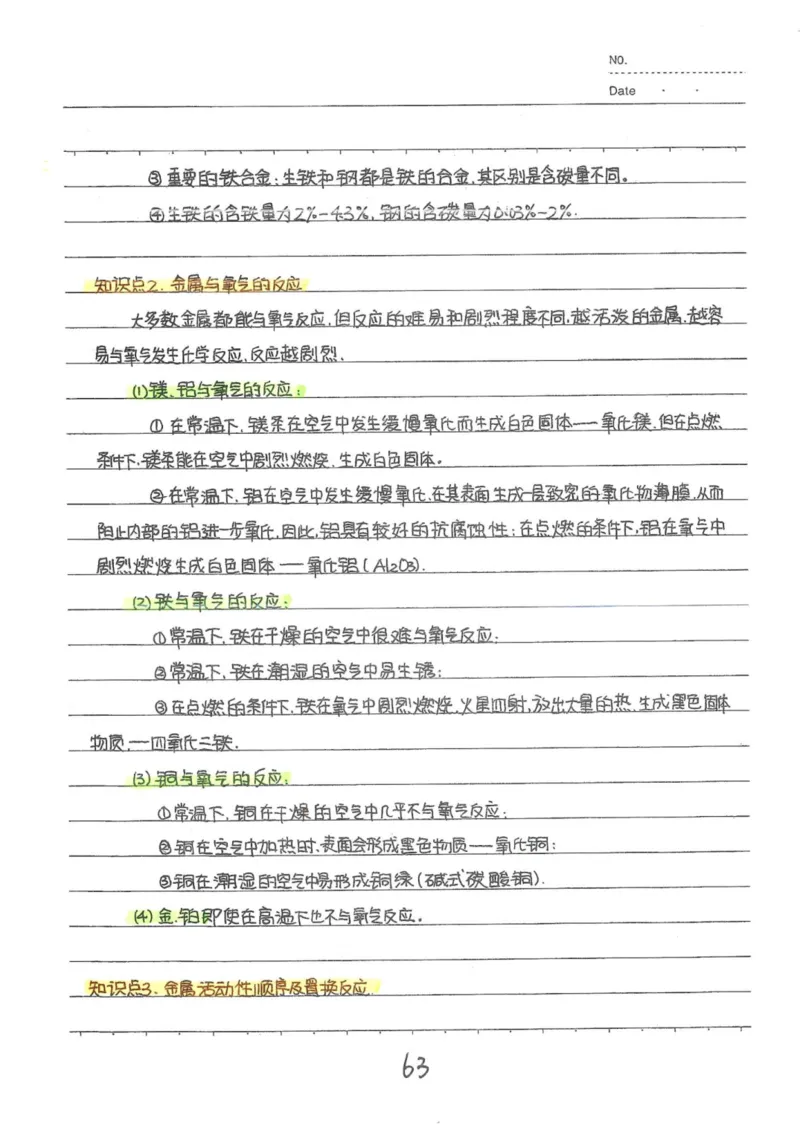 NO.
Date
③重要的铁合金:生铁和钢都是铁的合金,其区别是含碳量不同。
④生铁的含铁量为2%-4.3%,钢的含碳量为0.03%-2%.
知识点2. 金属与氧气的反应
大多数金属都能与氧气反应,但反应的难易和剧烈程度不同,越活泼的金属,越容
易与氧气发生化学反应,反应越剧烈.
(1)镁、铝与氧气的反应:
①在常温下,镁条在空气中发生缓慢氧化而生成白色固体——氧化镁,但在点燃
条件下,镁条能在空气中剧烈燃烧,生成白色固体。
②在常温下,铝在空气中发生缓慢氧化,在其表面生成一层致密的氧化物薄膜,从而
阻止内部的铝进一步氧化,因此,铝具有较好的抗腐蚀性;在点燃的条件下,铝在氧气中
剧烈燃烧生成白色固体——氧化铝(Al2O3).
(2)铁与氧气的反应:
①常温下,铁在干燥的空气中很难与氧气反应;
②常温下,铁在潮湿的空气中易生锈;
③在点燃的条件下,铁在氧气中剧烈燃烧,火星四射,放出大量的热,生成黑色固体
物质,——四氧化三铁.
(3)铜与氧气的反应:
①常温下,铜在干燥的空气中几乎不与氧气反应;
②铜在空气中加热时,表面会形成黑色物质——氧化铜;
③铜在潮湿的空气中易形成铜绿(碱式碳酸铜).
(4)金.铂即使在高温下也不与氧气反应。
知识点3. 金属活动性顺序及置换反应.
63